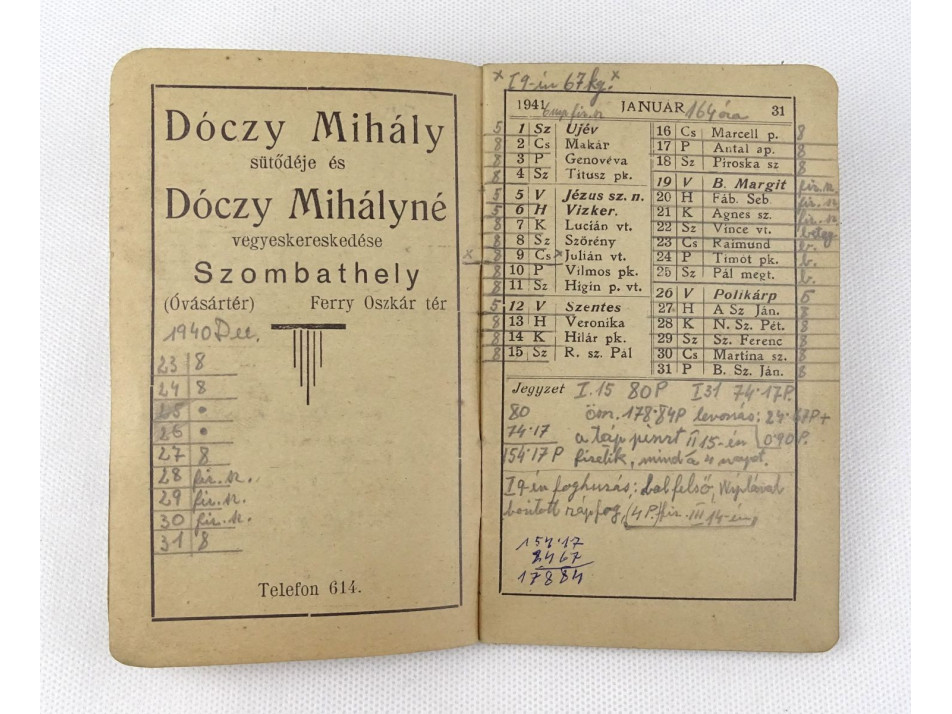 Dóczy Mihály
sütődéje és
Dóczy Mihályné
vegyeskereskedése
Szombathely
(Óvásártér) Ferry Oszkár tér
1940 Dec.
23 8
24 8
25 •
26 •
27 8
28 fiz. sz.
29 fiz. sz.
30 fiz. sz.
31 8
Telefon 614.
x I 9-én 67 kg. x
1941 JANUÁR 164 óra 31
5 1 Sz Újév
8 2 Cs Makár
8 3 P Genovéva
8 4 Sz Titusz pk.
5 5 V Jézus sz. n.
5 6 H Vizker.
8 7 K Lucián vt.
8 8 Sz Szörény
x 8 9 Cs x Julián vt.
8 10 P Vilmos pk.
8 11 Sz Higin p. vt.
5 12 V Szentes
8 13 H Veronika
8 14 K Hilár pk.
8 15 Sz R. sz. Pál
16 Cs Marcell p. 8
17 P Antal ap. 8
18 Sz Piroska sz 8
19 V B. Margit fiz. sz.
20 H Fáb. Seb. fiz. sz.
21 K Ágnes sz. fiz. sz.
22 Sz Vince vt. beteg
23 Cs Raimund b.
24 P Timót pk. b.
25 Sz Pál megt. b.
26 V Polikárp 5
27 H A Sz Ján. 8
28 K N. Sz. Pét. 8
29 Sz Sz. Ferenc 8
30 Cs Martina sz. 8
31 P B. Sz. Ján. 8
Jegyzet I. 15 80P I 31 74·17P.
80 öm. 178·84P levonás: 24·67P+
74·17 a táp pénzt II 15-én 0·90P.
154·17 P fizetik, mind a 4 napot.
I 9-én foghuzás: bal felső,
borított zápfog, (4P.) fiz. III 14-én,
154·17
2467
17884